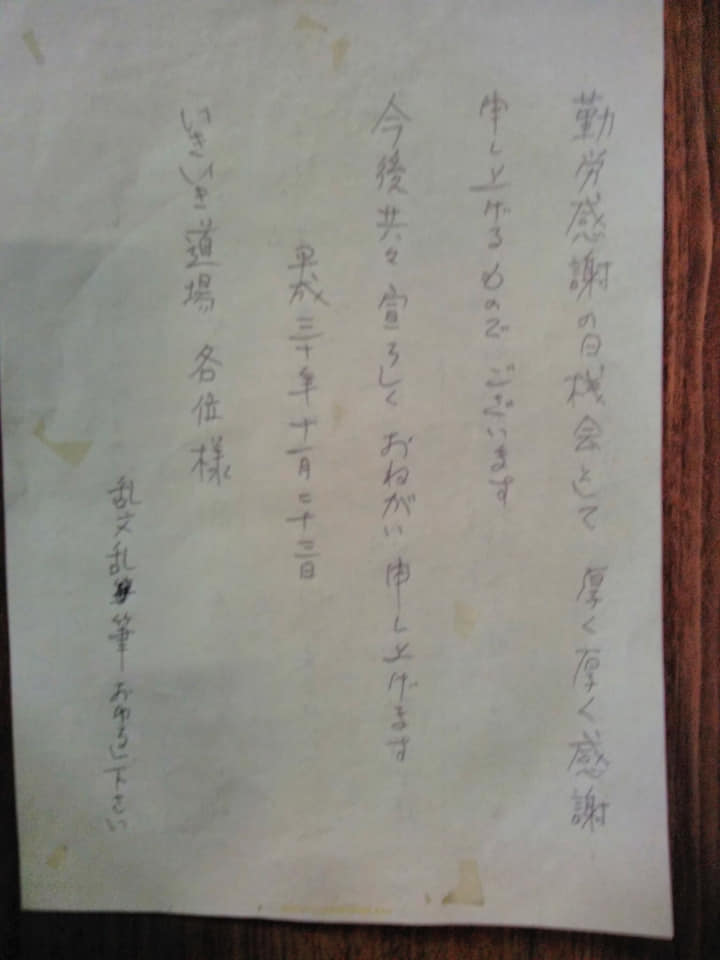 勤労感謝の日機会として 厚く厚く感謝
申し上げるものでございます
今後共々宜ろしくおねがい申し上げます
平成三十年十一月二十三日
いきいき道場 各位様
乱文乱筆おゆるし下さい